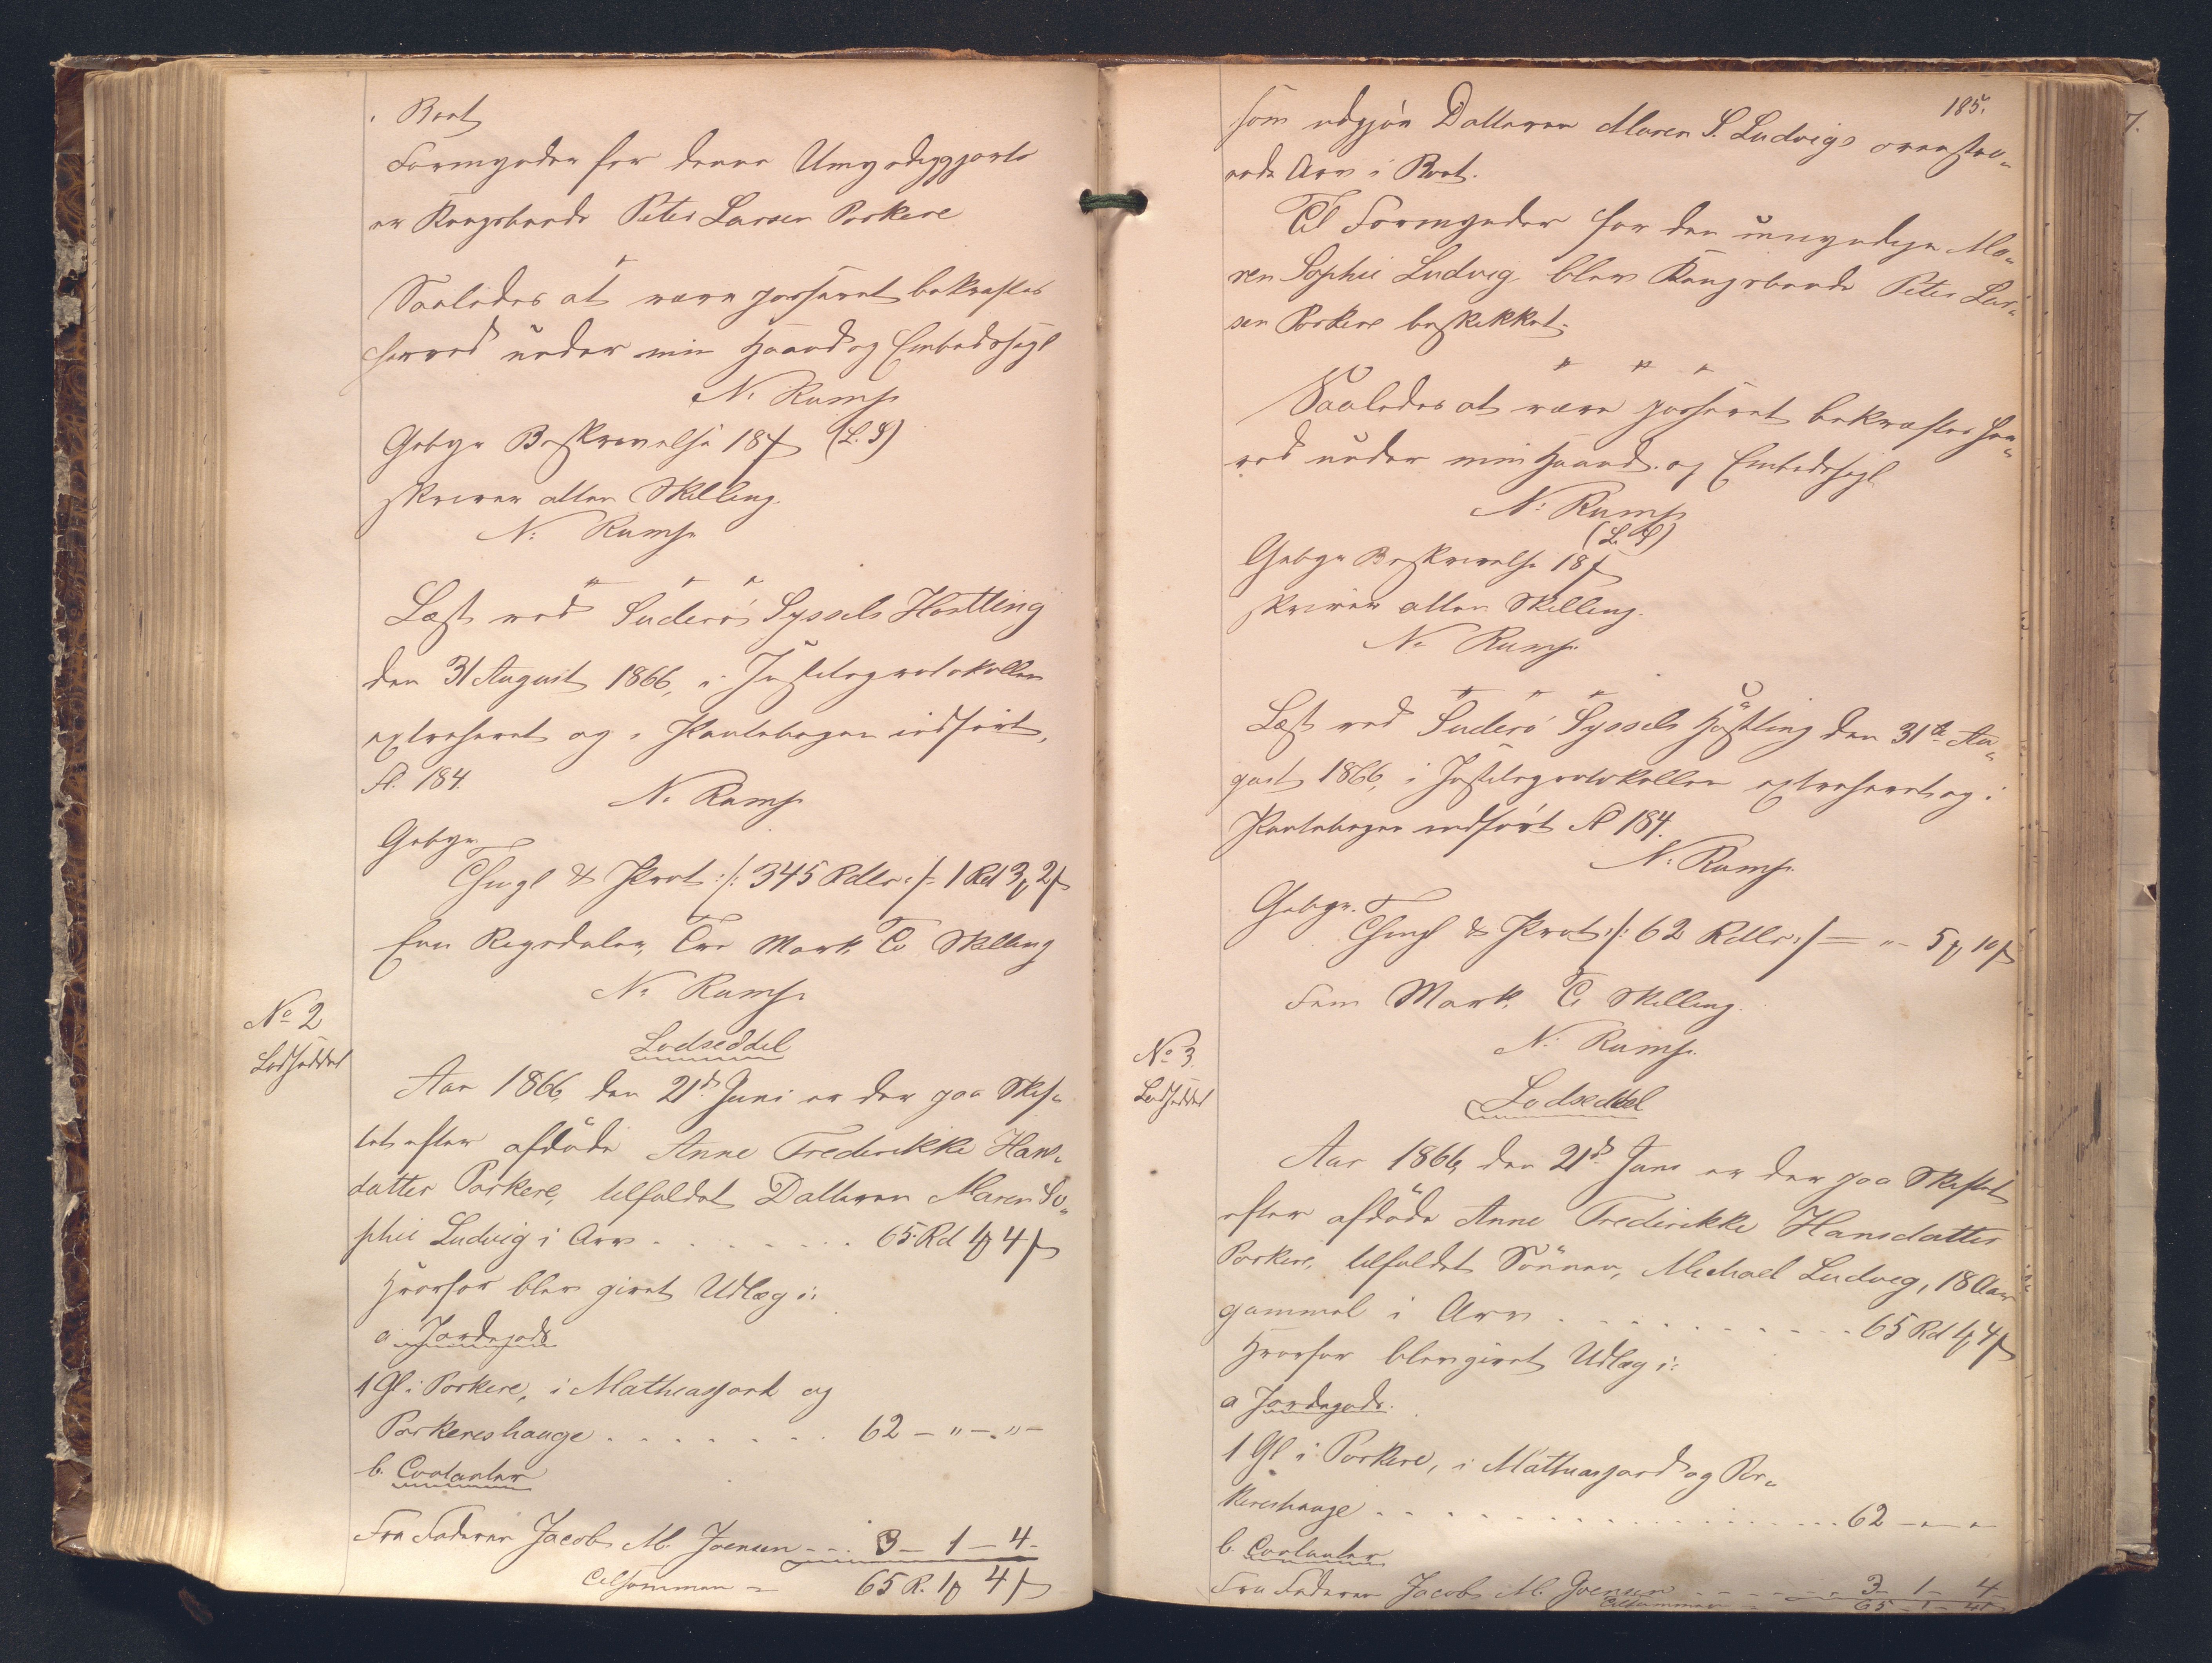 i Boet
Formynder for denne Umyndiggjorte
er Kongsbonde Peter Larsen Porkere
"
Saaledes at være passeret bekræftes
herved under min Haand og Embedssegl
N. Rump
Gebyr Beskrivelse 18 ß (L.S)
skriver atten Skilling.
N. Rump
" " "
Læst ved Suderø Syssels Høstting
den 31 August 1866, i Justitsprotokollen
extraheret og i Pantebogen indført,
Fl. 184.
N. Rump
Gebyr
Thingl & Prot :/: 345 Rdlr :/: 1 Rd 3 ₻ 2 ß
Een Rigsdaler, Tre Mark To Skilling
N. Rump
No 2
Lodseddel
Lodseddel
Aar 1866, den 21de Juni er der paa Skif-
tet efter afdøde Anne Frederikke Hans-
datter Porkere, tilfaldet Datteren Maren So-
phie Ludvig i Arv . . . . . . . 65 Rd 1 ₻ 4 ß
Hvorfor blev givet Udlæg i:
a. Jordegods
1 Gl i Porkere, i Mathiasjord og
Porkereshauge . . . . . . . 62 - " - " -
b. Contanter
Fra Faderen Jacob M. Joensen - - . 3 - 1 - 4 -
Tilsammen = 65 R. 1 ₻ 4 ß
185.
som udgjør Datteren Maren S. Ludvigs ovenstaa-
ende Arv i Boet.
Til Formynder for den umyndige Ma-
ren Sophie Ludvig blev Kongsbonde Peter Lar-
sen Porkere beskikket.
" " "
Saaledes at være passeret bekræftes her-
ved under min Haand og Embedssegl
N. Rump
(L.S)
Gebyr Beskrivelse 18 ß
skriver atten Skilling.
N. Rump
" " "
Læst ved Suderø Syssels Høstting den 31te Au-
gust 1866, i Justitsprotokollen extraheret og i
Pantebogen indført Fl 184.
N. Rump
Gebyr.
Thingl & Prot :/: 62 Rdlr :/: = " - 5 ₻ 10 ß
Fem Mark Ti Skilling.
N. Rump.
No 3.
Lodseddel
Lodseddel
Aar 1866, den 21de Juni er der paa Skiftet
efter afdøde Anne Frederikke Hansdatter
Porkere, tilfaldet Sønnen, Michael Ludvig, 18 Aar
gammel i Arv . . . . . . . . . . 65 Rd 1 ₻ 4 ß
Hvorfor blev givet Udlæg i:
a Jordegods.
1 Gl i Porkere, i Mathiasjord og Por-
kereshauge . . . . . . . . . . 62 - " - "
b. Contanter
Fra Faderen Jacob M. Joensen - - - - - - 3 - 1 - 4
Tilsammen 65 - 1 - 4